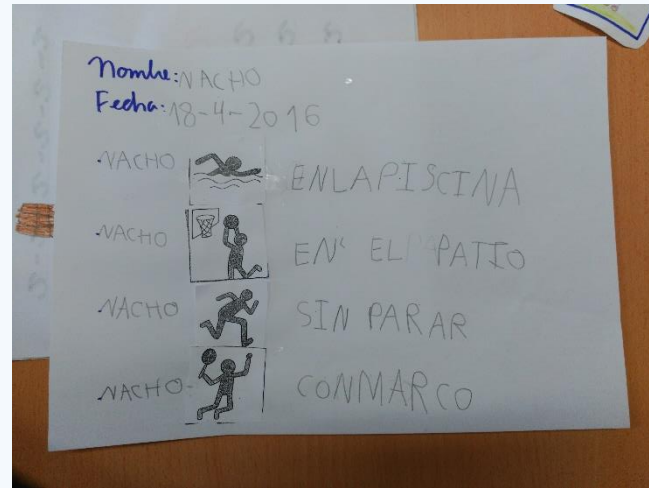 Nombre: NACHO
Fecha: 18-4-2016
NACHO EN LA PISCINA
NACHO EN EL PATIO
NACHO SIN PARAR
NACHO CON MARCO